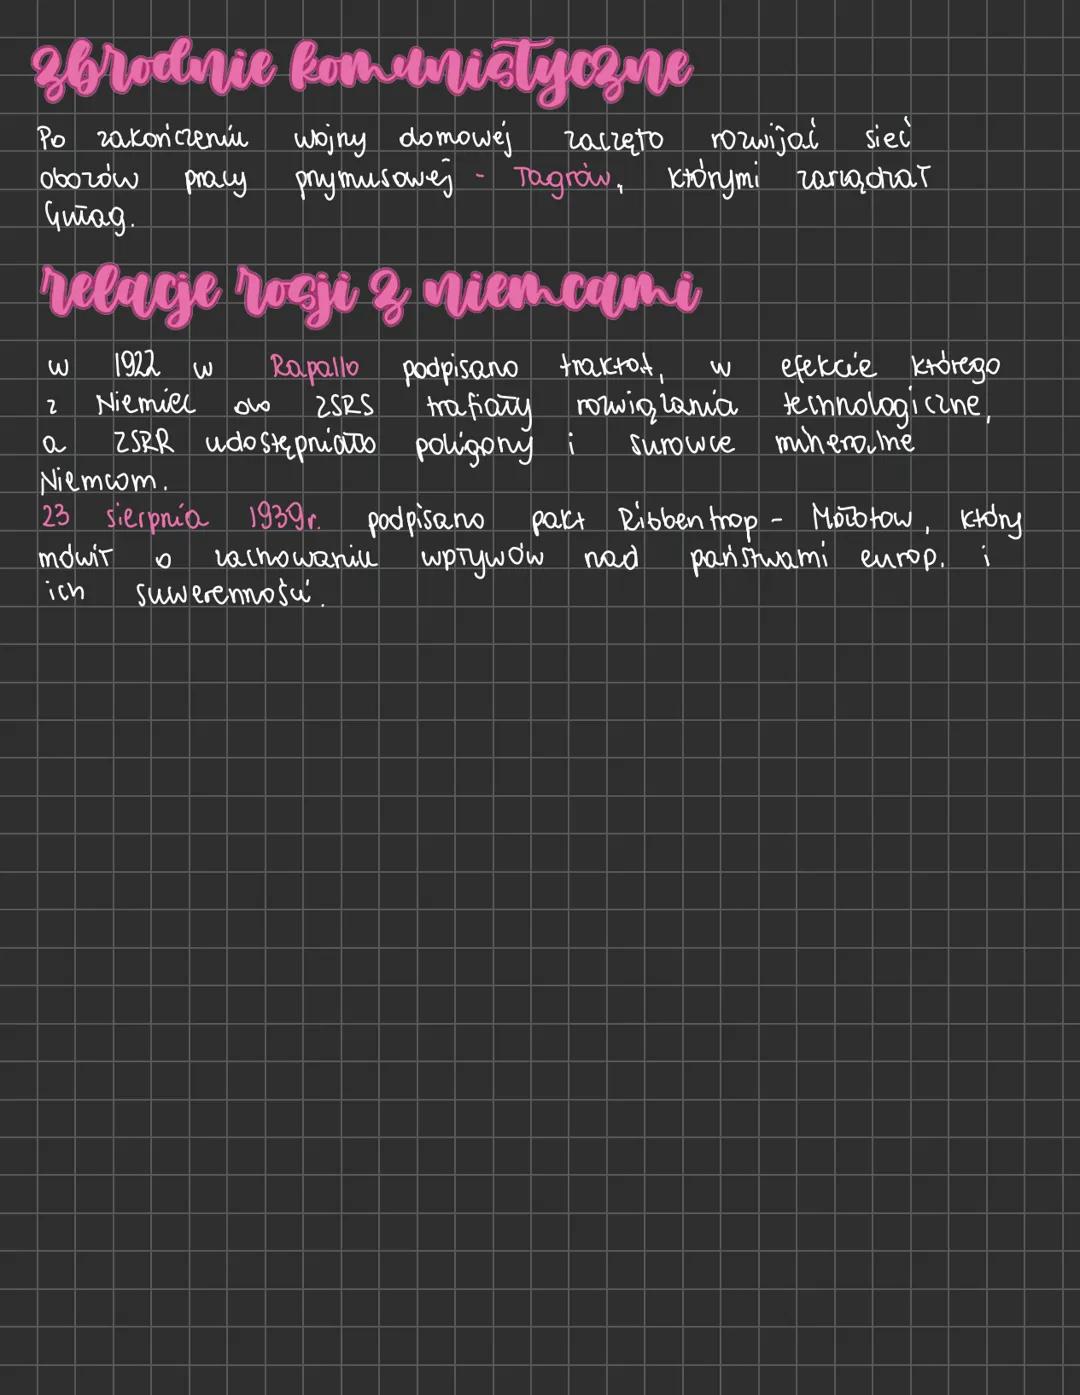 zbrodnie komunistyczne
Po zakończeniu wojny domowej zaczęto rozwijać sieć
obozów pracy przymusowej - Łagrów, którymi zarządzał
Gułag.
relacje rosji z niemcami
w 1922 w Rapallo podpisano traktat, w efekcie którego
z Niemiec do ZSRS trafiały rozwiązania technologiczne,
a ZSRR udostępniało poligony i surowce mineralne
Niemcom.
23 sierpnia 1939r. podpisano pakt Ribbentrop - Mołotow, który
mówił o zachowaniu wpływów nad państwami europ. i
ich suwerenności.